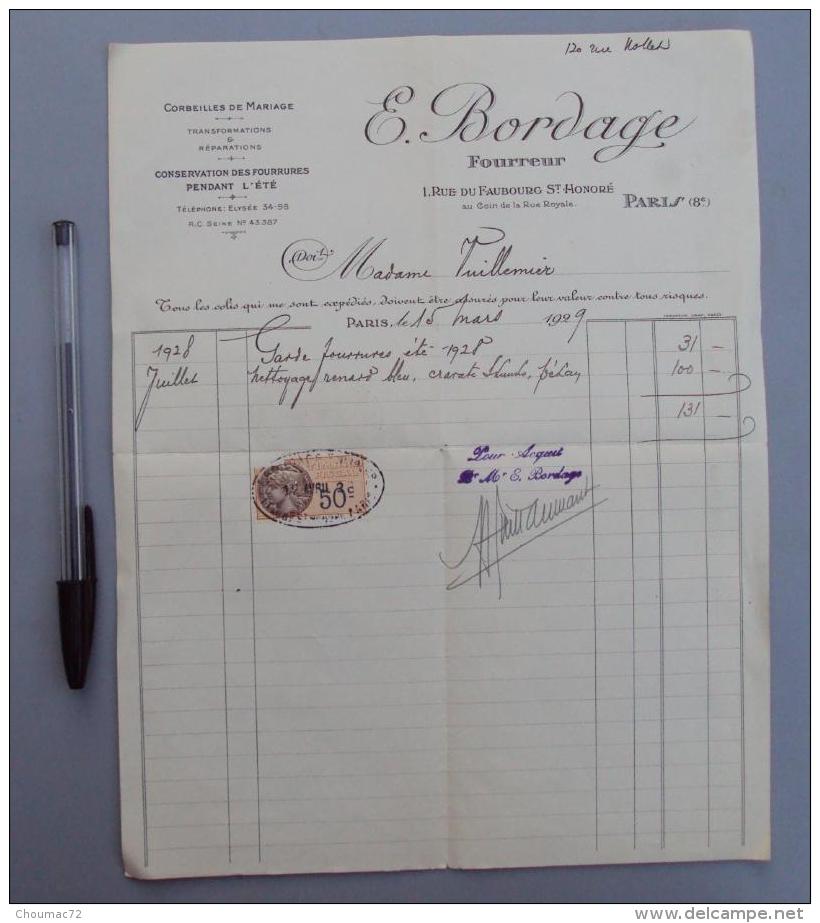 120 rue Nollet
CORBEILLES DE MARIAGE
TRANSFORMATIONS
&
RÉPARATIONS
CONSERVATION DES FOURRURES
PENDANT L'ÉTÉ
TÉLÉPHONE: ELYSÉE 34-98
R.C. SEINE Nº 43.387
E. Bordage
Fourreur
1, RUE DU FAUBOURG ST HONORÉ
au Coin de la Rue Royale.
PARIS (8e)
Doit
Madame Vuillemier
Tous les colis qui me sont expédiés, doivent être assurés pour leur valeur contre tous risques.
PARIS, le 15 mars 1929
1928 Garde fourrures été 1928 31 —
Juillet Nettoyage renard bleu, cravate Skunks, 100 —
131 —
AVRIL
50c
PARIS
Pour Acquit
Mr E. Bordage
Choumac72
www.delcampe.net